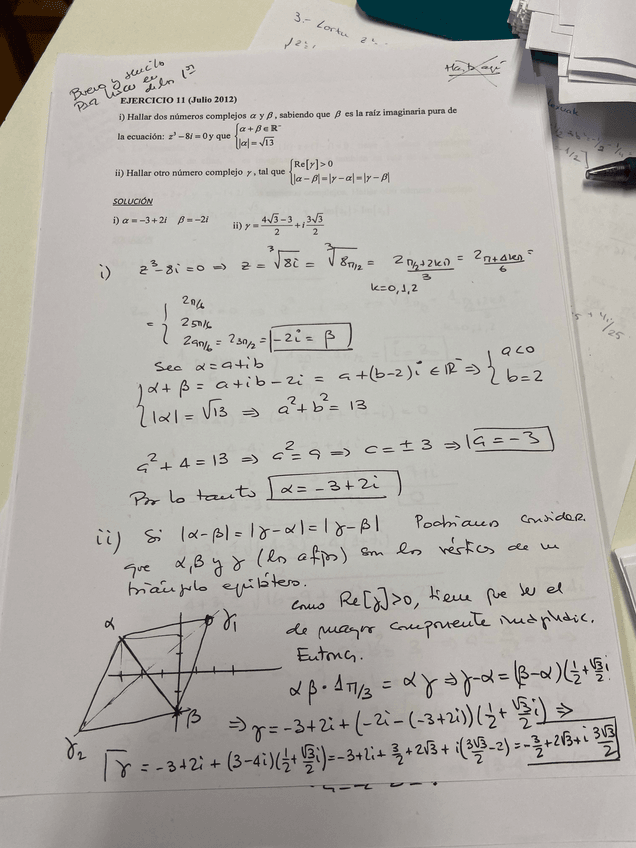 3.- Lortu
Buena y sencilla
EJERCICIO 11 (Julio 2012)
i) Hallar dos números complejos α y β, sabiendo que β es la raíz imaginaria pura de
la ecuación: z³ − 8i = 0 y que { α + β ∈ R⁻
|α| = √13
ii) Hallar otro número complejo γ, tal que { Re[γ] > 0
|α − β| = |γ − α| = |γ − β|
SOLUCIÓN
i) α = −3 + 2i β = −2i ii) γ = (4√3 − 3)/2 + i 3√3/2
i) z³ − 8i = 0 ⇒ z = ∛8i = ∛8_π/2 = 2_(π/2 + 2kπ)/3 = 2_(π + 4kπ)/6 =
k = 0, 1, 2
= { 2_π/6
2_5π/6
2_9π/6 = 2_3π/2 = −2i = β
Sea α = a + ib
{ α + β = a + ib − 2i = a + (b−2)i ∈ R⁻ ⇒ { a < 0
b = 2
|α| = √13 ⇒ a² + b² = 13
a² + 4 = 13 ⇒ a² = 9 ⇒ a = ± 3 ⇒ a = −3
Por lo tanto α = −3 + 2i
ii) Si |α−β| = |γ−α| = |γ−β| Podríamos considerar
que α, β y γ (los afijos) son los vértices de un
triángulo equilátero.
Como Re[γ] > 0, tiene que ser el
α γ₁
de mayor componente
Entonces.
αβ · 1_π/3 = αγ ⇒ γ−α = (β−α)(1/2 + √3/2 i)
β
⇒ γ = −3 + 2i + (−2i − (−3 + 2i))(1/2 + √3/2 i) ⇒
γ₂
γ = −3 + 2i + (3 − 4i)(1/2 + √3/2 i) = −3 + 2i + 3/2 + 2√3 + i(3√3/2 − 2) = −3/2 + 2√3 + i 3√3/2